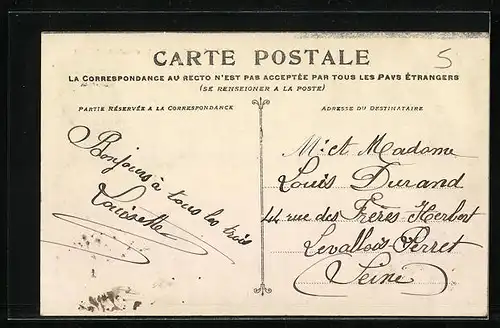 5
CARTE POSTALE
LA CORRESPONDANCE AU RECTO N'EST PAS ACCEPTÉE PAR TOUS LES PAYS ÉTRANGERS
(SE RENSEIGNER A LA POSTE)
PARTIE RÉSERVÉE A LA CORRESPONDANCE
ADRESSE DU DESTINATAIRE
Bonjours à tous les trois
Louisette
M: et Madame
Louis Durand
44 rue des Frères Herbert
Levallois-Perret
Seine